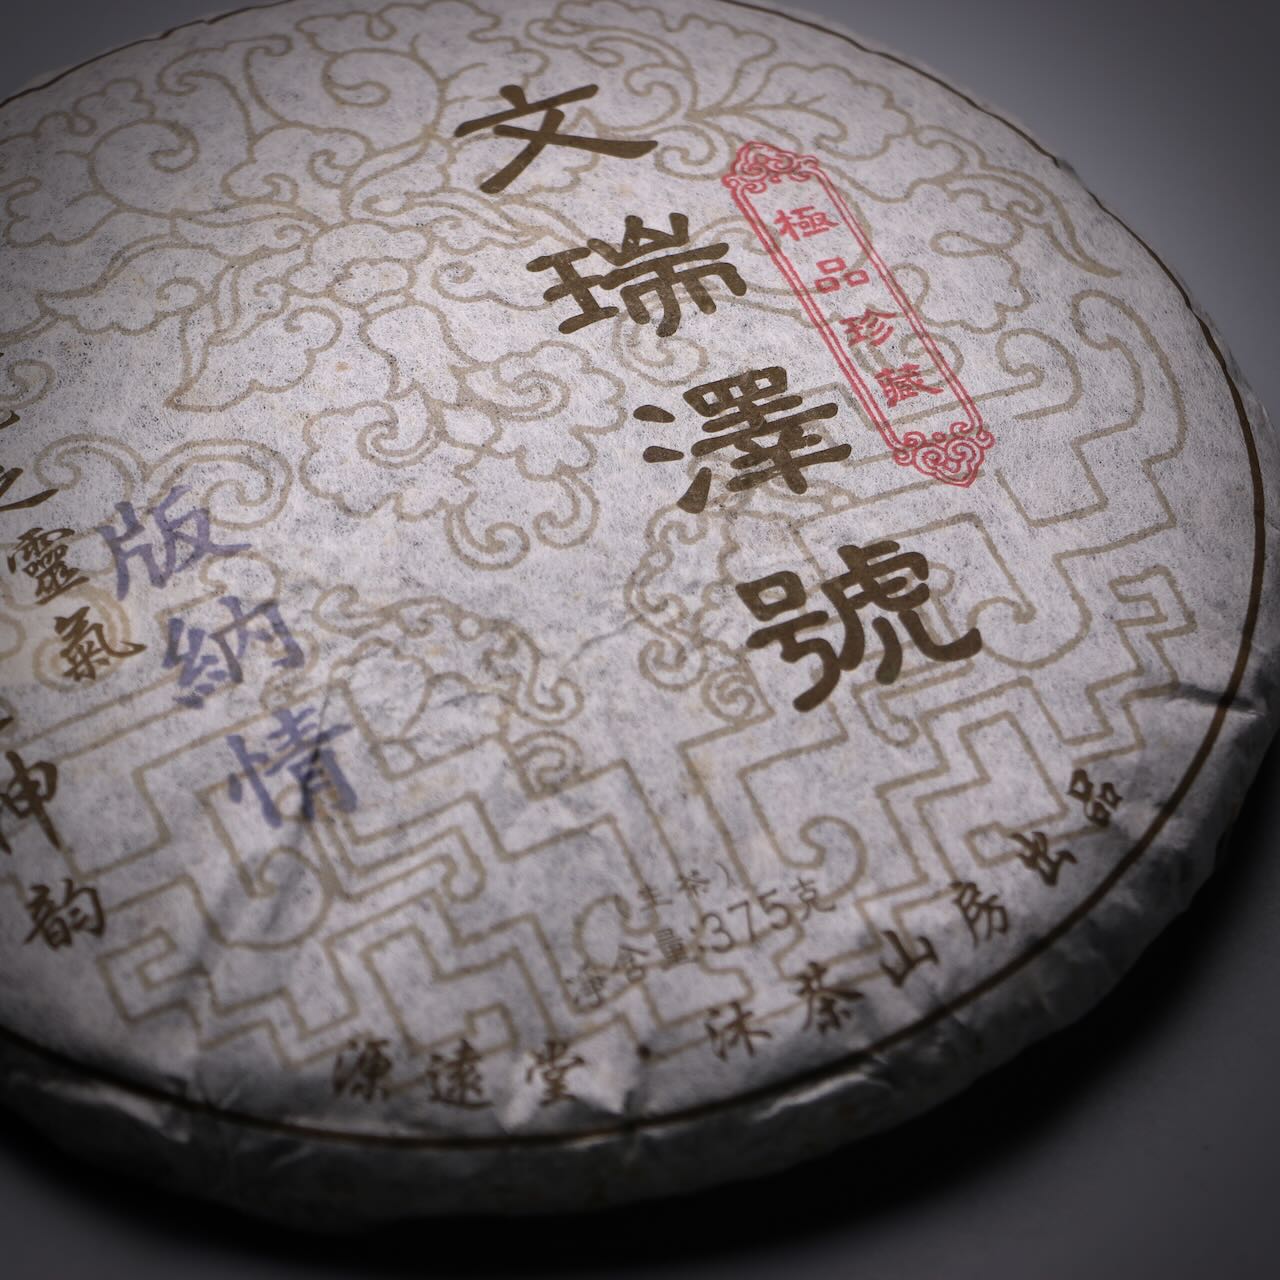 文瑞澤號
極品珍藏
版納情
靈氣
神韵
(生茶)
净含量:375克
源遠堂·沐茶山房出品